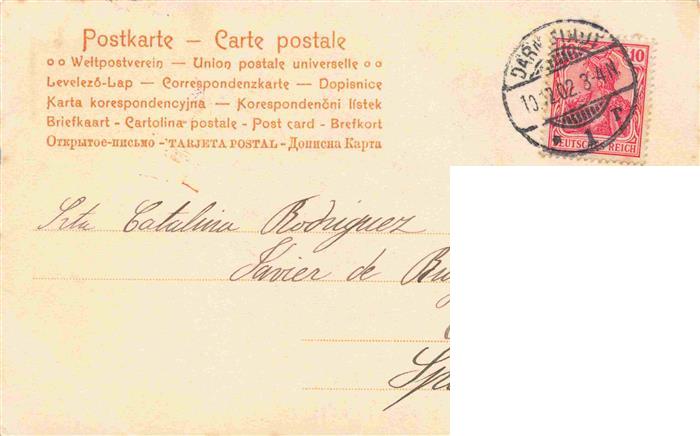 Postkarte – Carte postale
Weltpostverein – Union postale universelle
Levelező-Lap – Correspondenzkarte – Dopisnice
Karta korespondencyjna – Korespondenčni listek
Briefkaart - Cartolina postale - Post card - Brefkort
Открытое-письмо – TARJETA POSTAL - Дописна Карта
DARMSTADT
10.12.02. 3-4N
1
10
DEUTSCHES REICH
Srta Catalina Rodriguez
Javier de